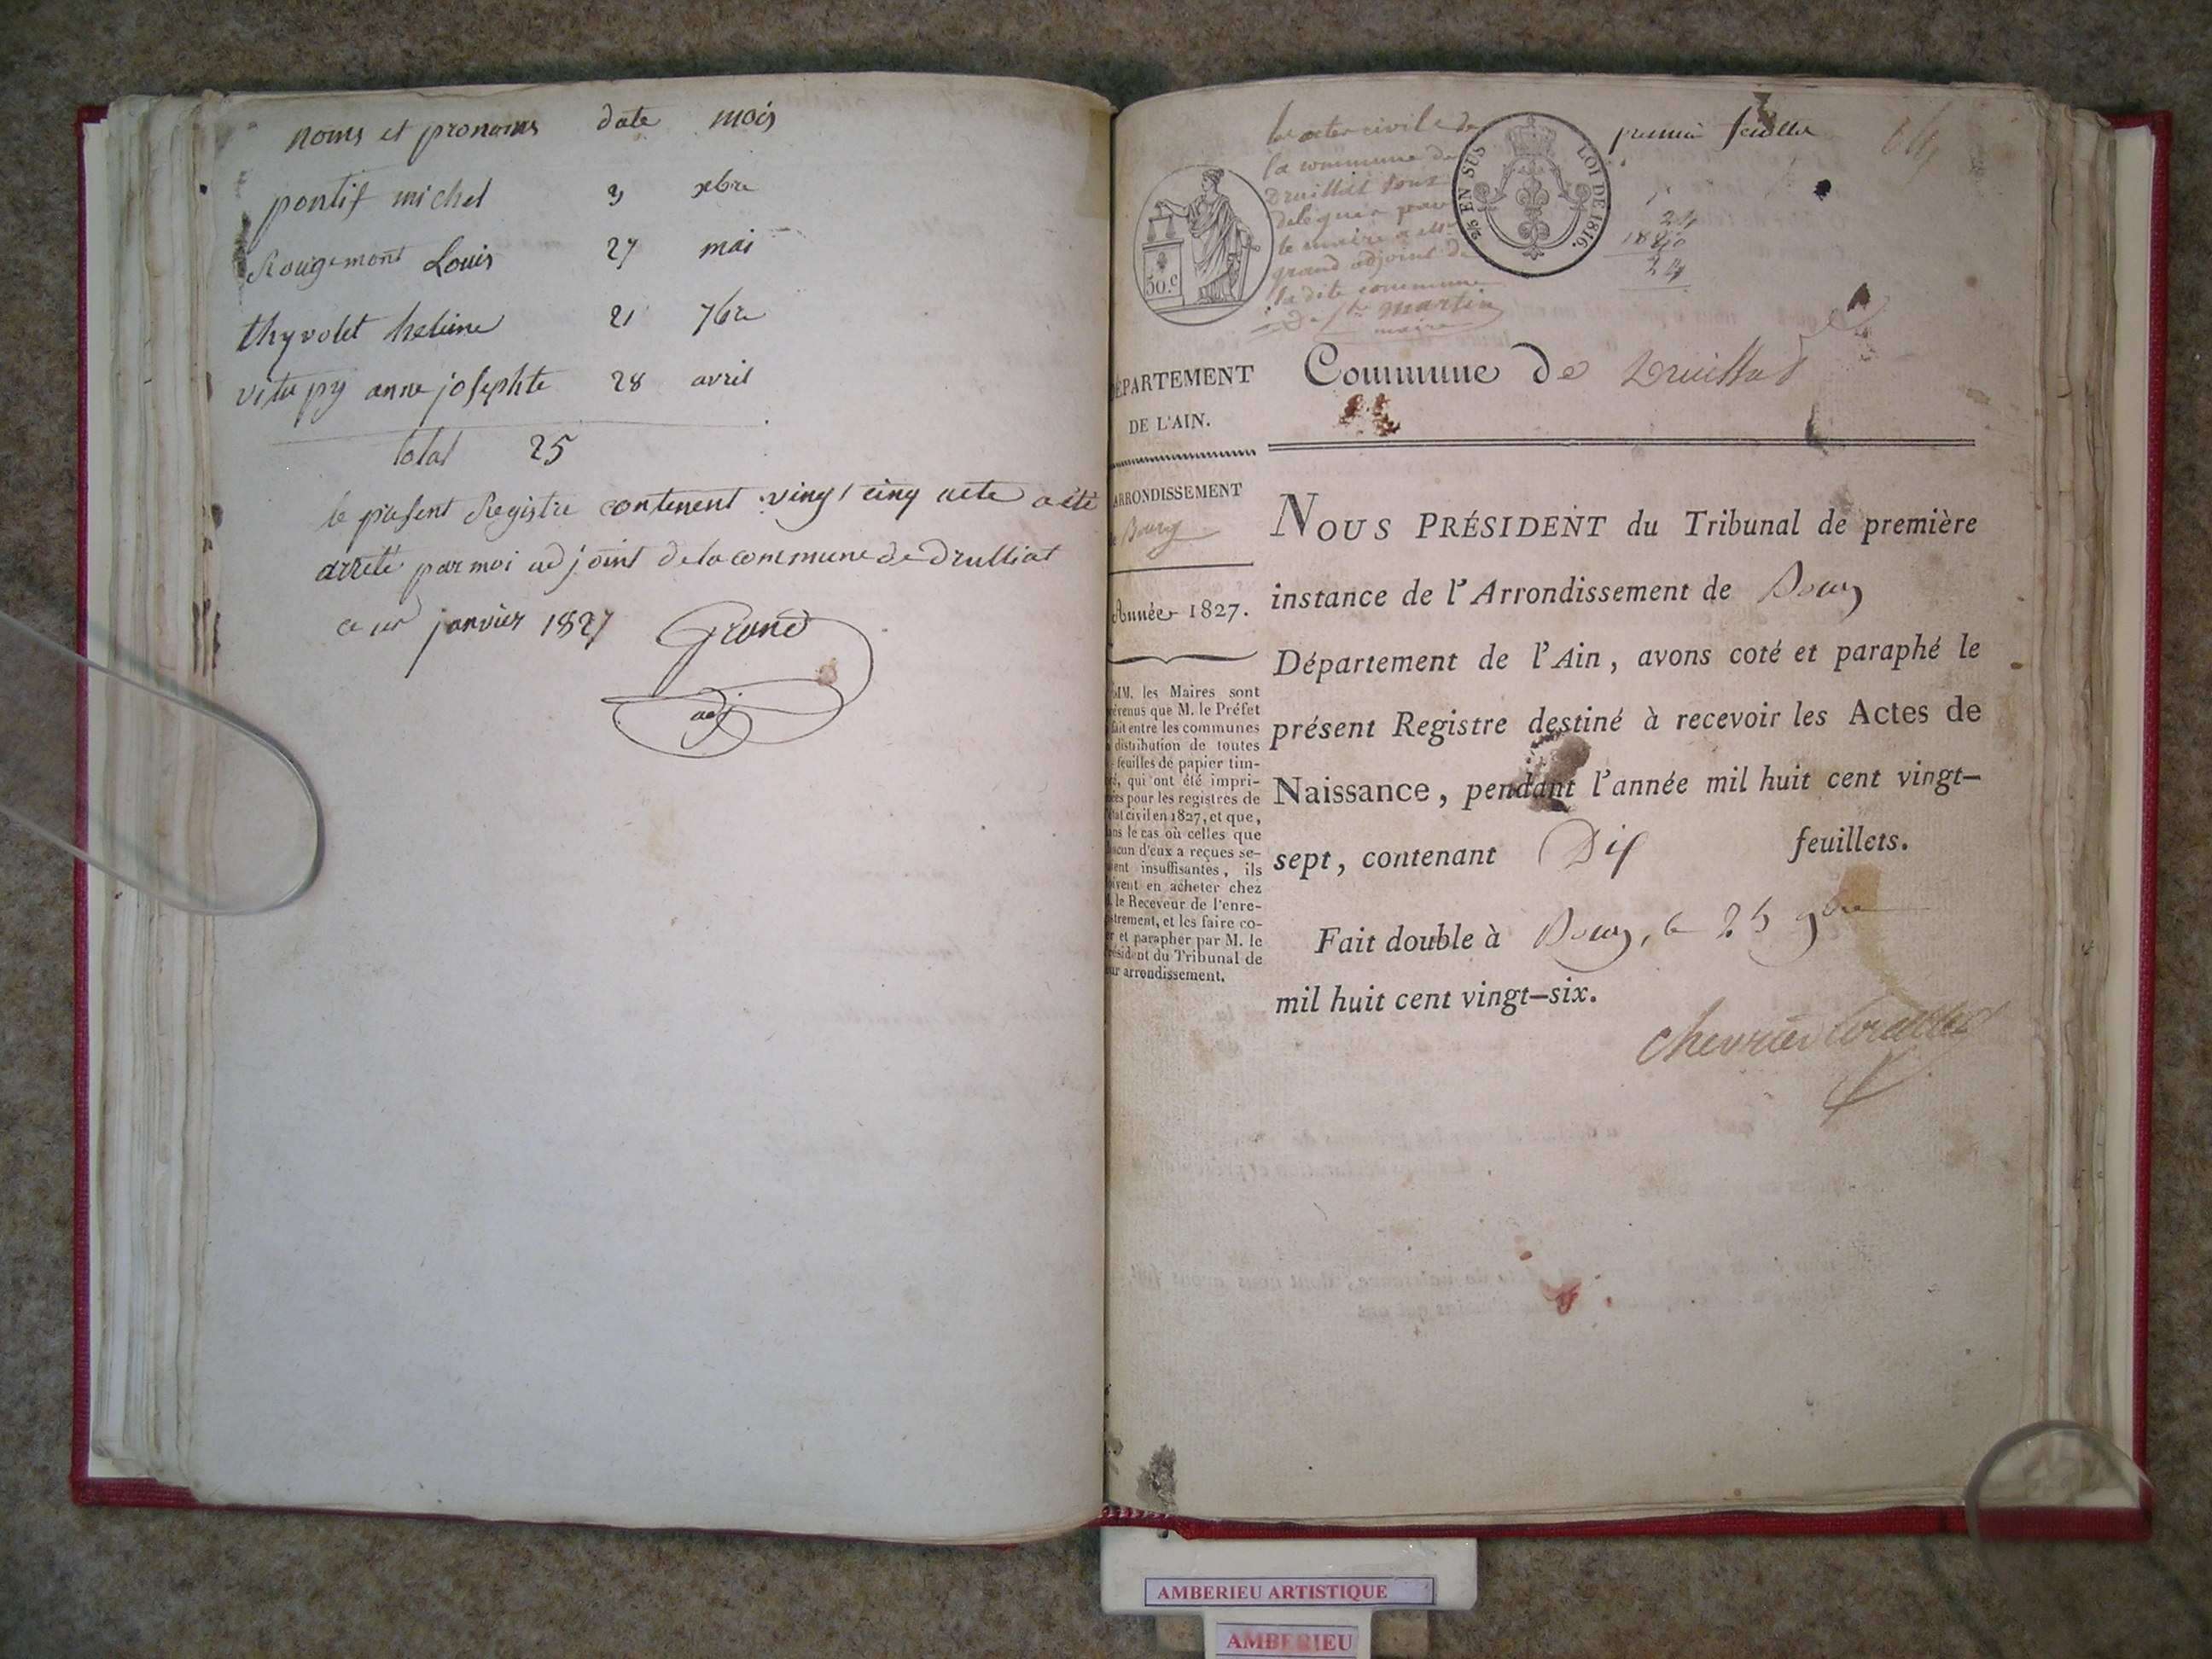 noms et pronoms date mois
pontif michel 3 xbre
Rougemont Louis 27 mai
thyvolet helene 21 7bre
vitu py anne josephte 28 avril
total 25
le présent Registre contenent vingt cinq acte a été
arreté par moi adjoint de la commune de drulliat
ce 1er janvier 1827 Grand
adj
premier feuillet
les actes civile de
la commune de
Druillat sont
delequer par
le maire a mr
grand adjoint de
la dite commune
De St Martin
maire
2/5 EN SUS
LOI DE 1816.
50.c
24
1820
24
DÉPARTEMENT
DE L'AIN.
Commune de Druillat
ARRONDISSEMENT
de Bourg
Année 1827.
MM. les Maires sont
prévenus que M. le Préfet
fait entre les communes
la distribution de toutes
les feuilles de papier tim-
bré, qui ont été impri-
mées pour les registres de
l'état civil en 1827, et que,
dans le cas où celles que
chacun d'eux a reçues se-
roient insuffisantes, ils
doivent en acheter chez
M. le Receveur de l'enre-
gistrement, et les faire co-
ter et parapher par M. le
Président du Tribunal de
leur arrondissement.
NOUS PRÉSIDENT du Tribunal de première
instance de l'Arrondissement de Bourg
Département de l'Ain, avons coté et paraphé le
présent Registre destiné à recevoir les Actes de
Naissance, pendant l'année mil huit cent vingt-
sept, contenant Dix feuillets.
Fait double à Bourg, le 25 9bre
mil huit cent vingt-six.
Chevrier Corcelles
AMBERIEU ARTISTIQUE
AMBERIEU